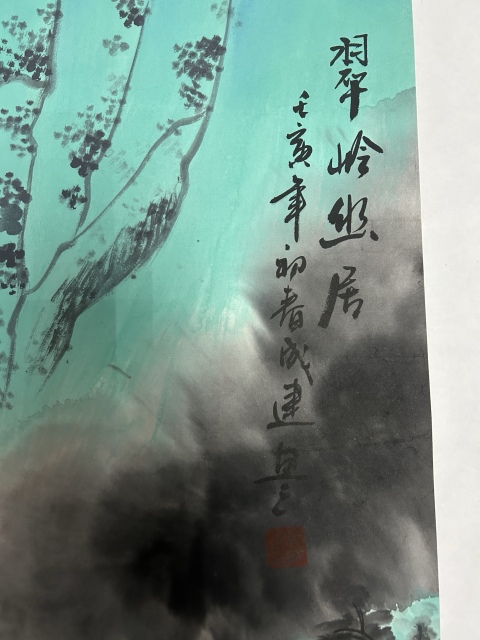 翠岭幽居
壬寅年初春成建画